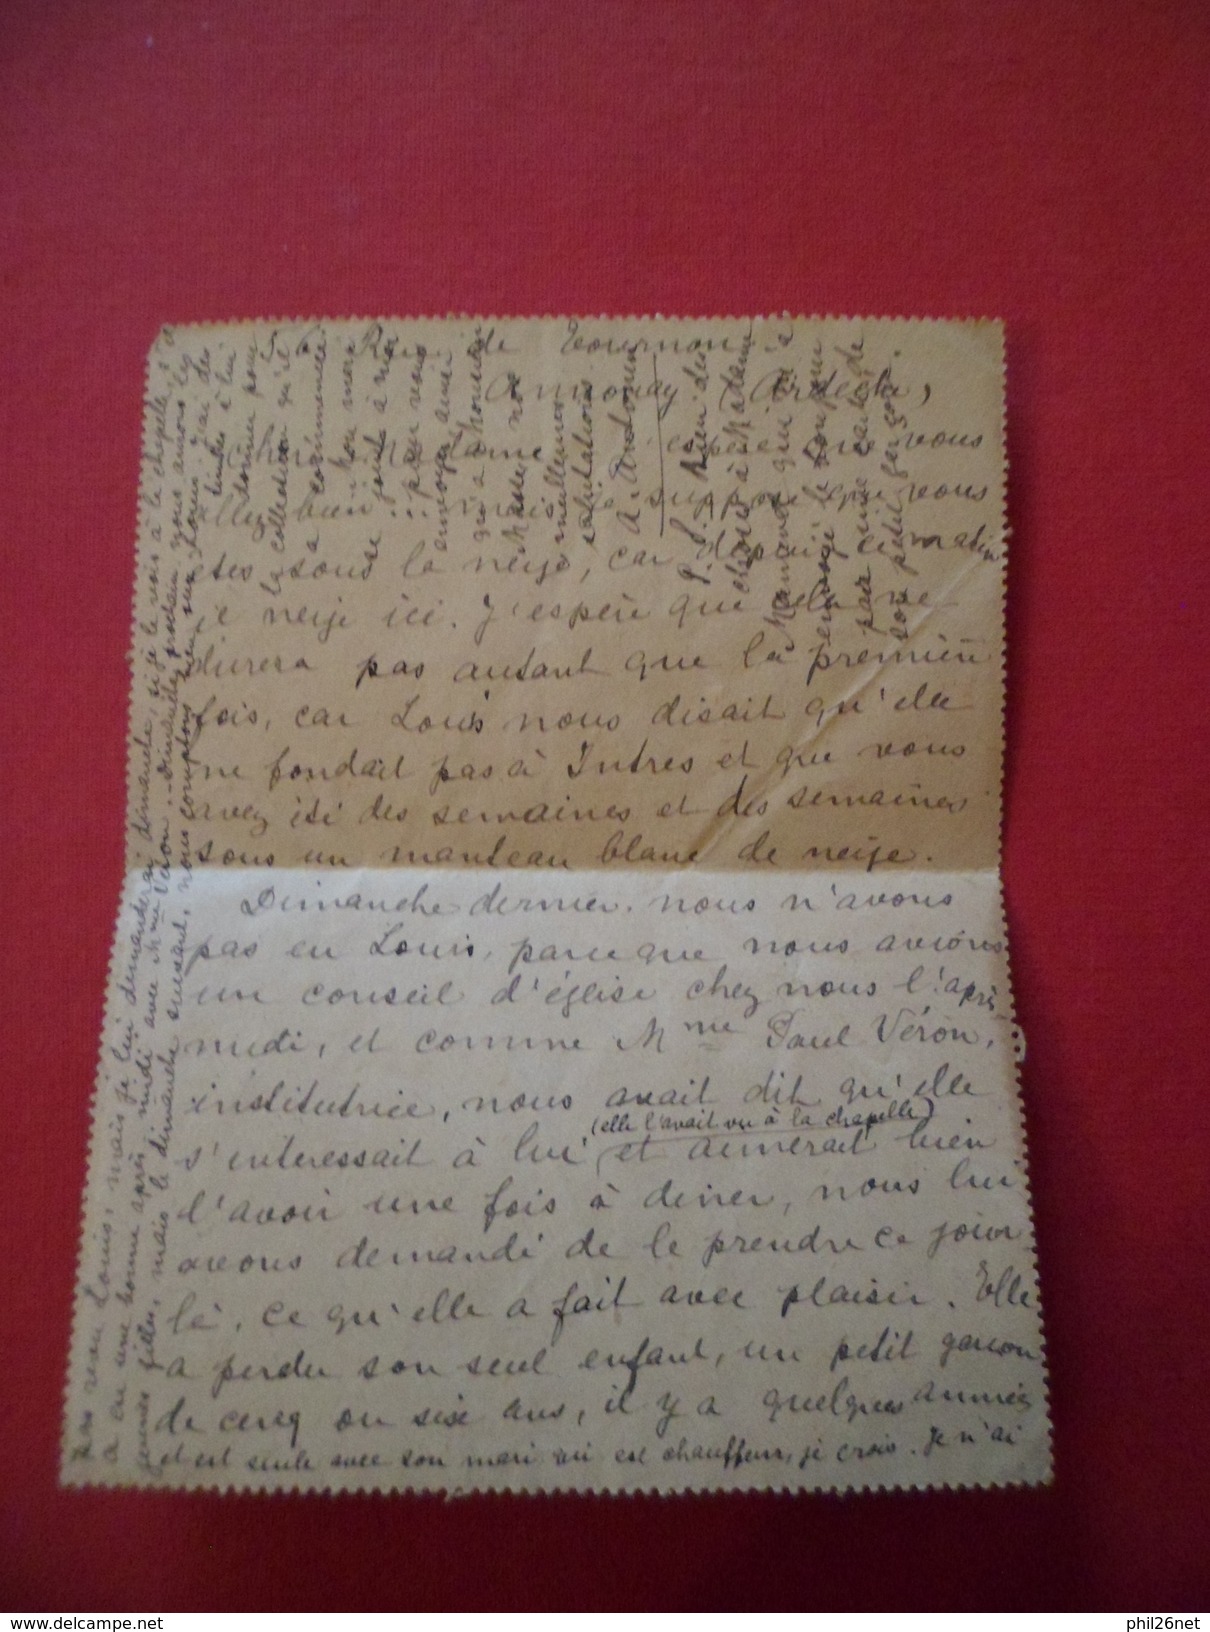 Rue de Tournon
Annonay (Ardèche),
Chère Madame espère que vous
allez bien... mais je suppose que vous
êtes sous la neige, car depuis ce matin
il neige ici. J'espère que cela ne
durera pas autant que la première
fois, car Louis nous disait qu'elle
ne fondait pas à Intres et que vous
avez été des semaines et des semaines
sous un manteau blanc de neige.
Dimanche dernier nous n'avons
pas eu Louis, parce que nous avions
un conseil d'église chez nous l'après-
midi, et comme Mme Paul Véron,
institutrice, nous avait dit qu'elle
(elle l'avait vu à la chapelle)
s'intéressait à lui et aimerait bien
l'avoir une fois à diner, nous lui
avons demandé de le prendre ce jour
là, ce qu'elle a fait avec plaisir. Elle
a perdu son seul enfant, un petit garçon
de cinq ou six ans, il y a quelques années
et est seule avec son mari qui est chauffeur, je crois. Je n'ai
pas revu Louis, mais je lui demanderai dimanche, si je le vois à la chapelle, s'il
a eu une bonne après midi avec Mme Véron. Dimanche prochain nous avons les
jeunes filles, mais le dimanche suivant, nous comptons bien sur Louis. J'ai des
timbres à lui
donner pour
la collection qu'il
a commencée
Mon mari
se joint à moi
pour vous
envoyer ainsi
qu'à Monsieur
Masse nos
meilleures
salutations.
A. Antomen
P.S. Rien des
choses à Madame
Maman qui m'a
envoyé le bonjour
par une carte de
son petit garçon.